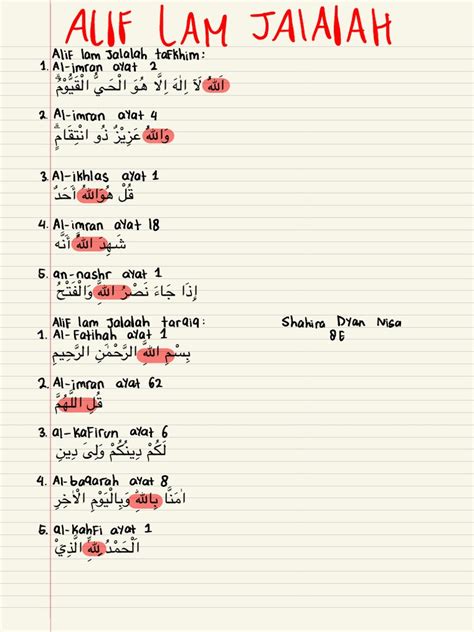 ALIF LAM JALALAH
Alif lam Jalalah tafkhim:
1. Al-imran ayat 2
اَللّٰهُ لَآ اِلٰهَ اِلَّا هُوَ الْحَيُّ الْقَيُّوْمُۗ
2. Al-imran ayat 4
وَاللّٰهُ عَزِيْزٌ ذُو انْتِقَامٍۗ
3. Al-ikhlas ayat 1
قُلْ هُوَاللّٰهُ أَحَدٌ
4. Al-imran ayat 18
شَهِدَ اللّٰهُ أَنَّه
5. an-nashr ayat 1
إِذَا جَآءَ نَصْرُ اللّٰهِ وَالْفَتْحُ
Alif lam Jalalah tarqiq: Shahira Dyan Nisa
1. Al-Fatihah ayat 1 8E
بِسْمِ اللّٰهِ الرَّحْمٰنِ الرَّحِيْمِ
2. Al-imran ayat 62
قُلِ اللّٰهُمَّ
3. al-Kafirun ayat 6
لَكُمْ دِينُكُمْ وَلِىَ دِينِ
4. Al-baqarah ayat 8
اٰمَنَّا بِاللّٰهِ وَبِالْيَوْمِ الْاٰخِرِ
5. al-Kahfi ayat 1
اَلْحَمْدُ لِلّٰهِ الَّذِيْٓ